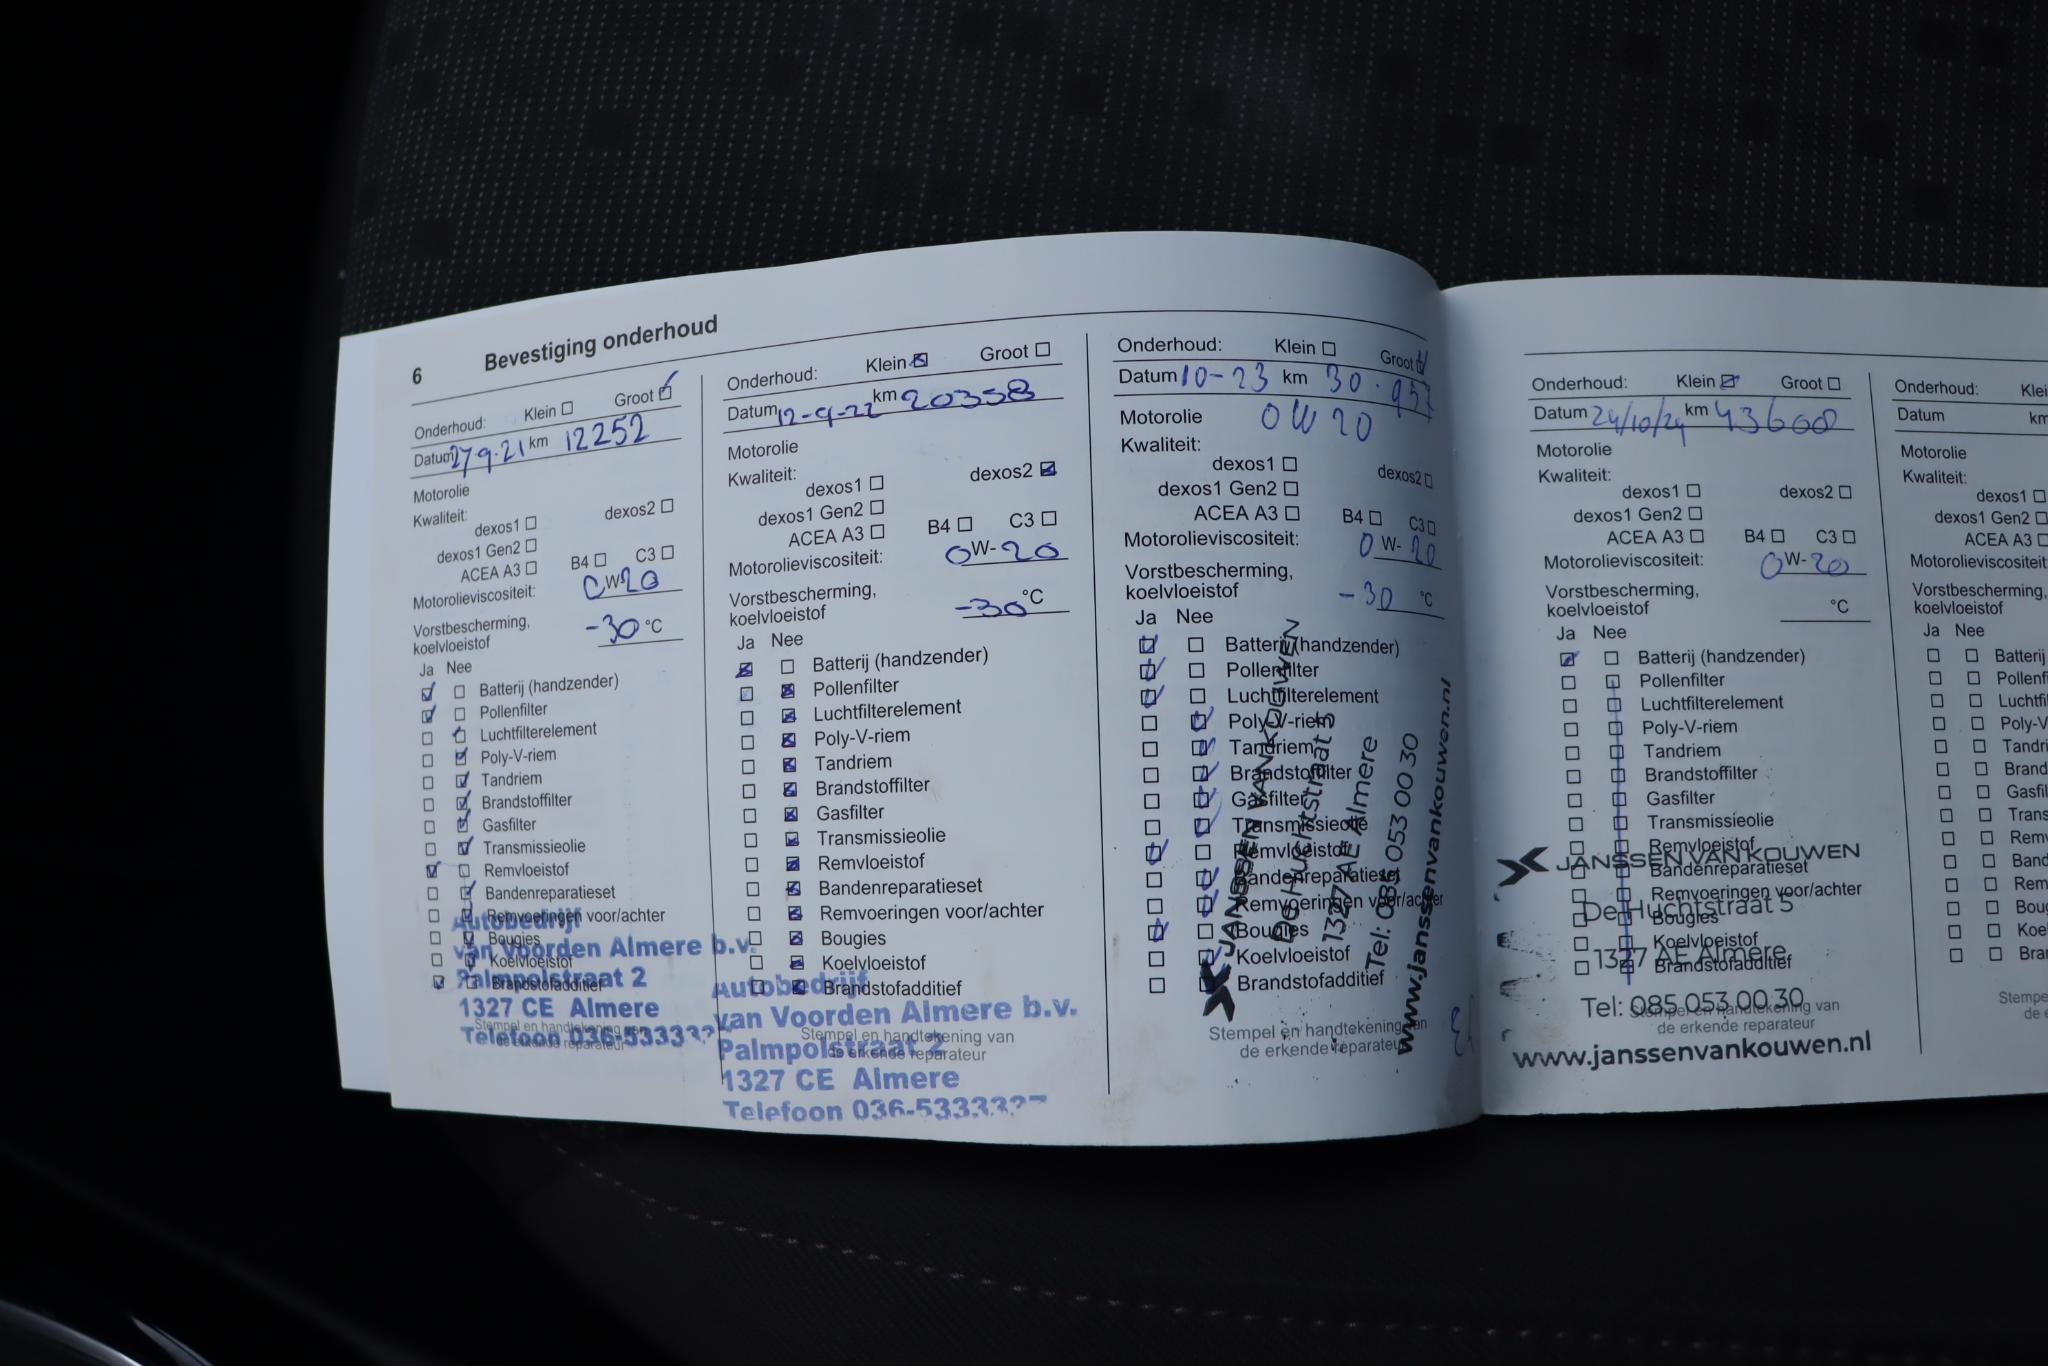 6 Bevestiging onderhoud
Onderhoud: Klein Groot
Datum 27-9-21 km 12252
Motorolie
Kwaliteit:
dexos1 dexos2
dexos1 Gen2
ACEA A3 B4 C3
Motorolieviscositeit: 0W-20
Vorstbescherming,
koelvloeistof -30 °C
Ja Nee
Batterij (handzender)
Pollenfilter
Luchtfilterelement
Poly-V-riem
Tandriem
Brandstoffilter
Gasfilter
Transmissieolie
Remvloeistof
Bandenreparatieset
Remvoeringen voor/achter
Bougies
Koelvloeistof
Brandstofadditief
Stempel en handtekening van
de erkende reparateur
Autobedrijf
van Voorden Almere b.v.
Palmpolstraat 2
1327 CE Almere
Telefoon 036-53333
Onderhoud: Klein Groot
Datum 12-9-22 km 20358
Motorolie
Kwaliteit:
dexos1 dexos2
dexos1 Gen2
ACEA A3 B4 C3
Motorolieviscositeit: 0W-20
Vorstbescherming,
koelvloeistof -30 °C
Ja Nee
Batterij (handzender)
Pollenfilter
Luchtfilterelement
Poly-V-riem
Tandriem
Brandstoffilter
Gasfilter
Transmissieolie
Remvloeistof
Bandenreparatieset
Remvoeringen voor/achter
Bougies
Koelvloeistof
Brandstofadditief
Stempel en handtekening van
de erkende reparateur
Autobedrijf
van Voorden Almere b.v.
Palmpolstraat 2
1327 CE Almere
Telefoon 036-5333337
Onderhoud: Klein Groot
Datum 10-23 km 30.957
Motorolie 0W20
Kwaliteit:
dexos1 dexos2
dexos1 Gen2
ACEA A3 B4 C3
Motorolieviscositeit: 0 W- 20
Vorstbescherming,
koelvloeistof -30 °C
Ja Nee
Batterij (handzender)
Pollenfilter
Luchtfilterelement
Poly-V-riem
Tandriem
Brandstoffilter
Gasfilter
Transmissieolie
Remvloeistof
Bandenreparatieset
Remvoeringen voor/achter
Bougies
Koelvloeistof
Brandstofadditief
Stempel en handtekening van
de erkende reparateur
JANSSEN VAN KOUWEN
De Huchtstraat 5
1327 AE Almere
Tel: 085 053 00 30
www.janssenvankouwen.nl
Onderhoud: Klein Groot
Datum 24/10/24 km 43608
Motorolie
Kwaliteit:
dexos1 dexos2
dexos1 Gen2
ACEA A3 B4 C3
Motorolieviscositeit: 0W-20
Vorstbescherming,
koelvloeistof °C
Ja Nee
Batterij (handzender)
Pollenfilter
Luchtfilterelement
Poly-V-riem
Tandriem
Brandstoffilter
Gasfilter
Transmissieolie
Remvloeistof
Bandenreparatieset
Remvoeringen voor/achter
Bougies
Koelvloeistof
Brandstofadditief
Stempel en handtekening van
de erkende reparateur
JANSSEN VAN KOUWEN
De Huchtstraat 5
1327 AE Almere
Tel: 085 053 00 30
www.janssenvankouwen.nl
Onderhoud: Klei
Datum km
Motorolie
Kwaliteit:
dexos1
dexos1 Gen2
ACEA A3
Motorolieviscositeit
Vorstbescherming,
koelvloeistof
Ja Nee
Batterij
Pollenf
Luchtfi
Poly-V
Tandri
Brand
Gasfil
Trans
Remv
Band
Rem
Boug
Koel
Bran
Stempe
de e